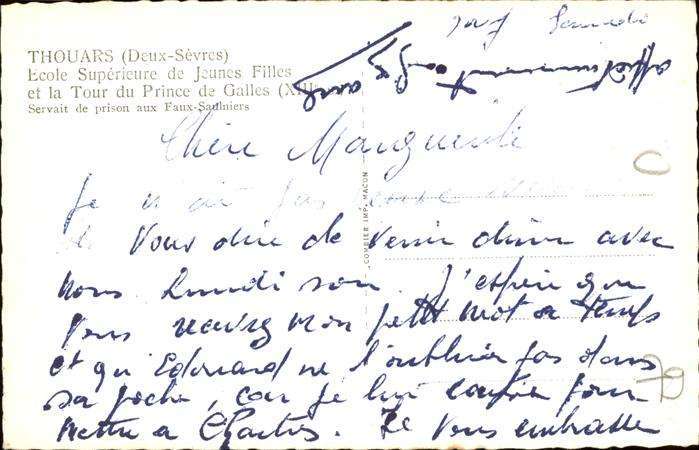 Samedi
THOUARS (Deux-Sèvres)
Ecole Supérieure de Jeunes Filles
et la Tour du Prince de Galles (XIII
Servait de prison aux Faux-Saulniers
COMBIER IMP. MACON
Chère Marguerite
Je n'ai pas
de vous dire de venir diner avec
nous Lundi soir. J'espère que
vous recevrez mon petit mot à temps
et qu'Edouard ne l'oublie pas dans
sa poche, car je lui confie pour
mettre à Chartres. Je vous embrasse
affectueusement